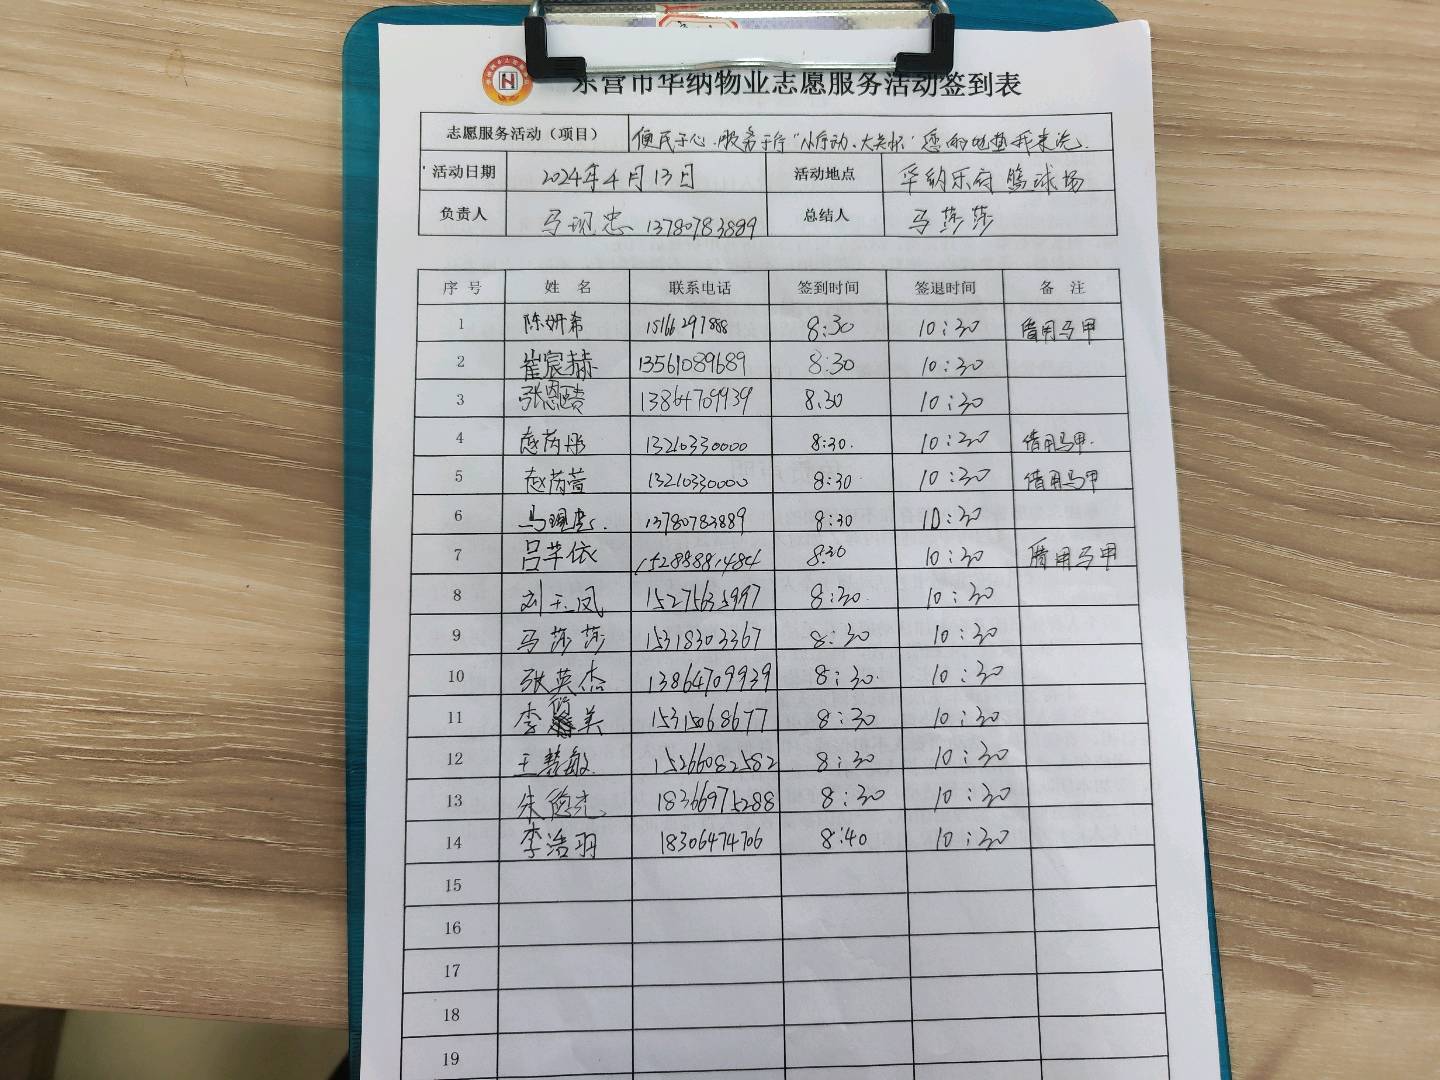 东营市华纳物业志愿服务活动签到表
志愿服务活动（项目） 便民于心·服务于行"小行动、大关怀"您的地垫我来洗
活动日期 2024年4月13日 活动地点 华纳乐府篮球场
负责人 马现忠 13780783889 总结人 马莎莎
序号 姓名 联系电话 签到时间 签退时间 备注
1 陈妍希 15166297888 8:30 10:30 借用马甲
2 崔宸赫 13561089689 8:30 10:30
3 张恩语 13864709939 8:30 10:30
4 赵芮彤 13210330000 8:30 10:30 借用马甲
5 赵芮萱 13210330000 8:30 10:30 借用马甲
6 马现忠 13780783889 8:30 10:30
7 吕芊依 15288881484 8:30 10:30 借用马甲
8 刘玉凤 15275635997 8:30 10:30
9 马莎莎 15318303367 8:30 10:30
10 张英杰 13864709939 8:30 10:30
11 李衍美 15315068677 8:30 10:30
12 王慧敏 15266082582 8:30 10:30
13 朱德志 18366975288 8:30 10:30
14 李浩羽 18306474706 8:40 10:30
15
16
17
18
19